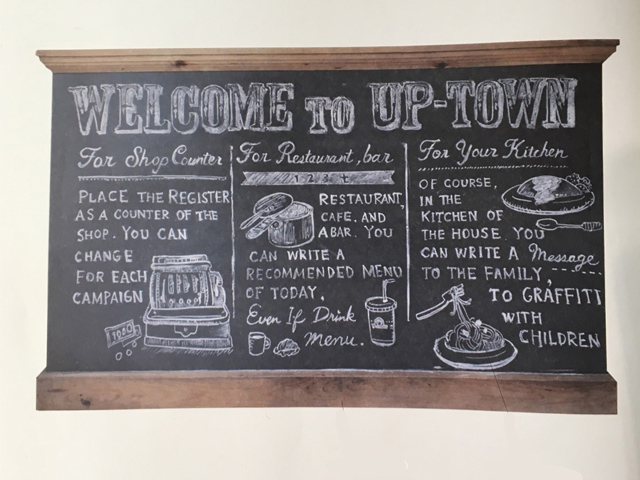 WELCOME TO UP-TOWN
For Shop Counter
PLACE THE REGISTER
AS A COUNTER OF THE
SHOP. YOU CAN
CHANGE
FOR EACH
CAMPAIGN
1980
For Restaurant, bar
1 2 3 4
RESTAURANT,
CAFE. AND
A BAR. YOU
CAN WRITE A
RECOMMENDED MENU
OF TODAY,
Even If Drink
Menu.
For Your Kitchen
OF COURSE,
IN THE
KITCHEN OF
THE HOUSE. YOU
CAN WRITE A Message
TO THE FAMILY,
TO GRAFFITI
WITH
CHILDREN